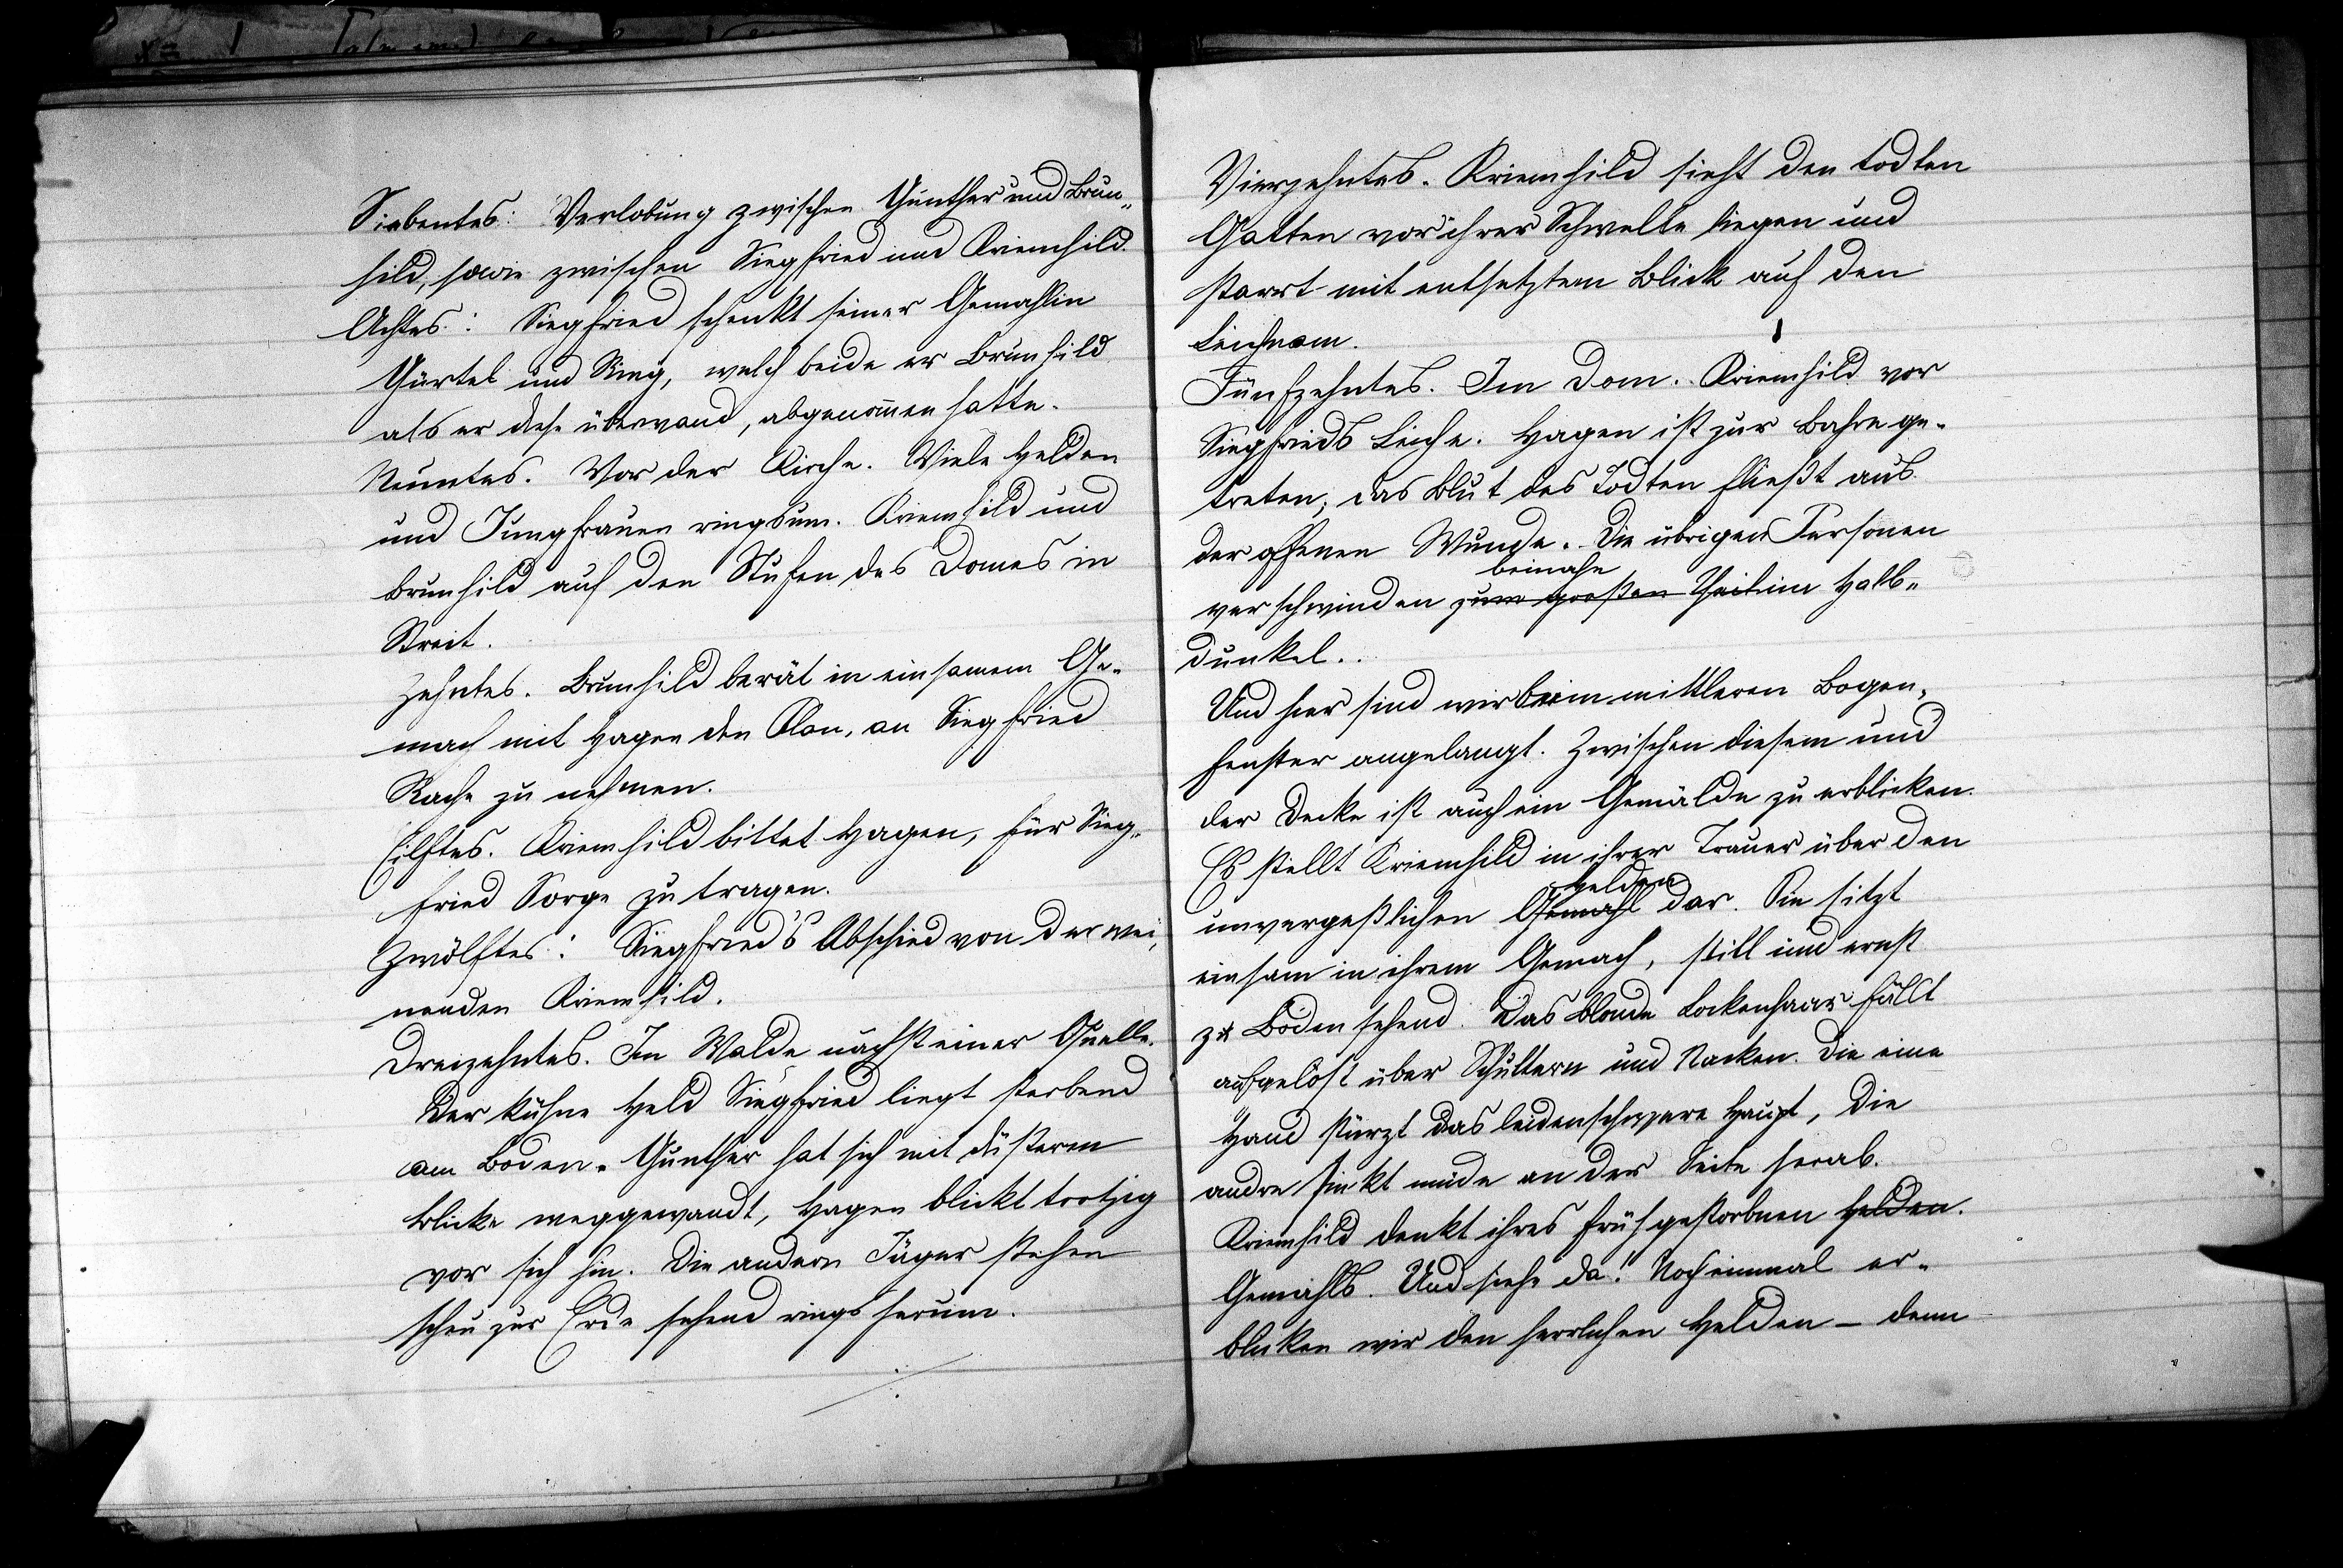 Siebentes: Verlobung zwischen Gunther und Brun-
hild, sowie zwischen Siegfried und Kriemhild.
Achtes: Siegfried schenkt seiner Gemahlin
Gürtel und Ring, welch beide er Brunhild
als er diese überwand, abgenommen hatte.
Neuntes. Vor der Kirche. Viele Helden
und Jungfrauen ringsum. Kriemhild und
Brunhild auf den Stufen des Domes in
Streit.
Zehntes. Brunhild berät in einsamem Ge-
mach mit Hagen den Plan, an Siegfried
Rache zu nehmen.
Eilftes. Kriemhild bittet Hagen, für Sieg-
fried Sorge zu tragen.
Zwölftes: Siegfried's Abschied von der wei-
nenden Kriemhild.
Dreizehntes. Im Walde nächst einer Quelle.
Der kühne Held Siegfried liegt sterbend
am Boden. Gunther hat sich mit düsterm
Blicke weggewandt, Hagen blickt trotzig
vor sich hin. Die andern Jäger stehen
scheu zur Erde sehend rings herum.
Vierzehntes. Kriemhild sieht den todten
Gatten vor ihrer Schwelle liegen und
starrt mit entsetztem Blick auf den
Leichnam.
Fünfzehntes. Im Dom. Kriemhild vor
Siegfrieds Leiche. Hagen ist zur Bahre ge-
treten; das Blut des Todten fließt aus
der offenen Wunde. Die übrigen Personen
beinahe
verschwinden zum großen Theil im Halb-
dunkel..
Und hier sind wir beim mittleren Bogen-
fenster angelangt. Zwischen diesem und
der Decke ist auch ein Gemälde zu erblicken.
Es stellt Kriemhild in ihrer Trauer über den
Helden
unvergeßlichen Gemahl dar. Sie sitzt
einsam in ihrem Gemach, still und ernst
zu Boden sehend. Das blonde Lockenhaar fällt
aufgelöst über Schultern und Nacken. Die eine
Hand stürzt das leidenschwere Haupt, die
andre sinkt müde an der Seite herab.
Kriemhild denkt ihres frühgestorbnen Helden.
Gemahls. Und siehe da! Noch einmal er-
blicken wir den herrlichen Helden – denn